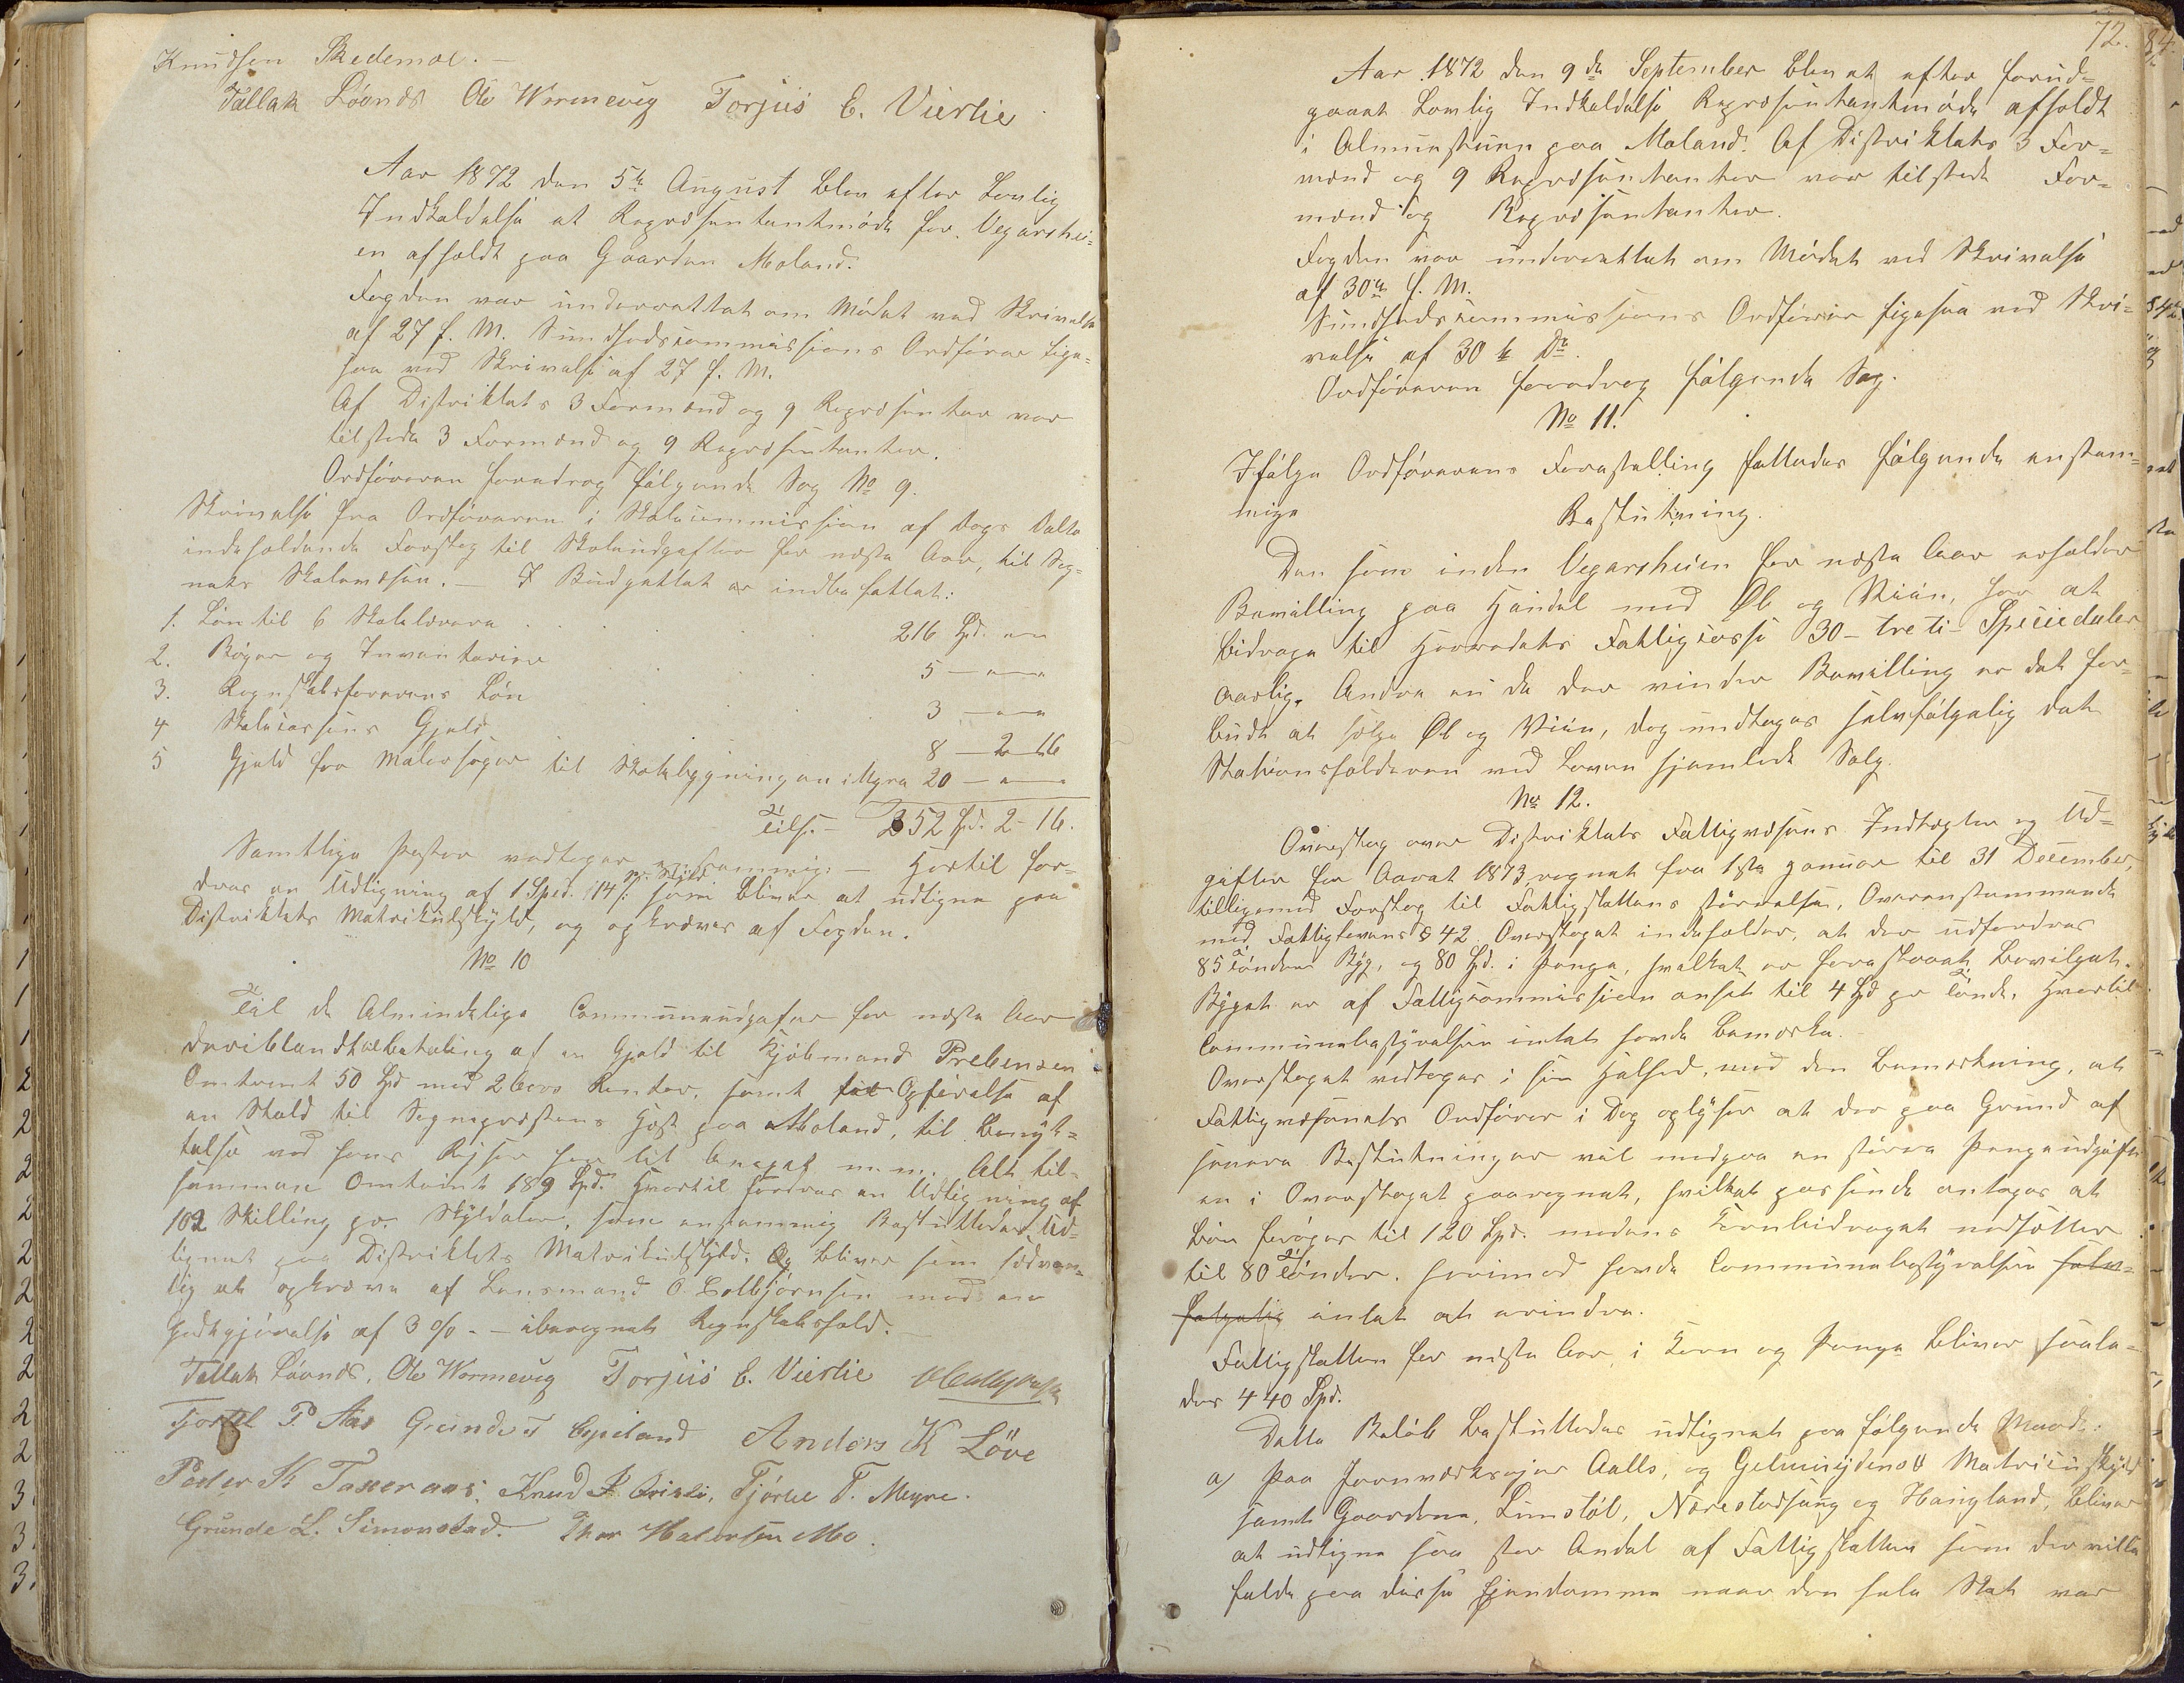 Knudsen Skedemoe. –
Tallak Lövnæs Ole Wormevig Torjus E. Vierlie
Aar 1872 den 5te August blev efter Lovlig
Indkaldelse et Repræsentantmöde for Vegarshei-
en afholdt paa Gaarden Moland.
Fogden var underrettet om Mödet ved Skrivelse
af 27 f. M. Sundhedscommissions Ordförer lige-
saa ved Skrivelse af 27 f. M.
Af Distriktets 3 Formænd og 9 Repræsenter var
tilstede 3 Formænd og 9 Repræsentanter.
Ordföreren foredrog fölgende Sag No 9.
Skrivelse fra Ordföreren i Skolecommissionen af Dags Dato
indeholdende Forslag til Skoleudgifter for næste Aar, til Sog-
nets Skolevæsen. – I Budgettet er indbefattet:
1. Lön til 6 Skolelærere . . . 216 Spd. " "
2. Böger og Inventarier . . 5 – " – "
3. Regnskabsförerens Lön . . 3 – " – "
4 Skolecassens Gjeld . . 8 – 2 – 16
5 Gjeld for Materialer til Skolebygningen i Myra 20 – " – "
Tils. – 252 Spd. 2 – 16.
Samtlige Poster vedtoges enstemmig. – Hertil for-
dres en Udligning af 1 Sped. 14 s: pr. Skyld som bliver at udligne paa
Distriktets Matrikulskyld, og opkræves af Fogden.
No 10
Til de Almindelige Communeudgifter for næste Aar
deriblandt tilbetaling af en Gjeld til Kjöbmand Prebensen
Omtrent 50 Spd med 2 Aars Renter, samt til Opförelse af
en Stald til Sognepræstens Hest paa Moland, til Benyt-
telse ved hans Rejser her til Annexet m. m. Alt til-
sammen Omtrent 189 Spd. Hvortil fordres en Udligning af
102 Skilling pr. Skylddaler, som enstemmig Besluttedes Ud-
lignet paa Distriktets Matrikulskyld. Og bliver som sædvan-
lig at opkræve af Lensmand O. Colbjörnsen med en
Godtgjörelse af 3 % – iberegnet Regnskabshold. –
Tallak Lövnæs, Ole Wormevig Torjus E. Vierlie OColbjörnsen
Tjostel P Aas Grunde T Espeland Anders K Löve
Peder K Taxeraas. Knud Lislii, Tjöstel T. Myre.
Grunde L. Simonstad. Thor Halvorsen Mo.
72.
Aar 1872 den 9de September blev et efter forud-
gaaet Lovlig Indkaldelse Repræsentantmöde afholdt
i Almuestuen paa Moland. Af Distriktets 3 For-
mænd og 9 Repræsentanter var tilstede For-
mænd og Repræsentanter.
Fogden var underrettet om Mödet ved Skrivelse
af 30te f. M.
Sundhedscommissions Ordförer ligesaa ved Skri-
velse af 30te Ds.
Ordföreren foredrog fölgende Sag.
No 11.
Ifölge Ordförerens Forestilling fattedes fölgende enstem-
mige
Beslutning.
Den som inden Vegarsheien for næste Aar erholder
Bevilling paa Handel med Öl og Viin, har at
bidrage til Herredets Fattigcasse 30 – treti – Speciedaler
aarlig. Andre end de der vinder Bevilling er det for-
budt at sælge Öl og Viin, dog undtages selvfölgelig det
Stationsholderen ved Loven hjemlede Salg.
No 12.
Overslag over Distriktets Fattigvæsens Indtægter og Ud-
gifter for Aaret 1873 regnet fra 1ste Januar til 31 December,
tilligemed Forslag til Fattigskattens störrelse, Overenstemmende
med Fattiglovens § 42. Overslaget indeholder, at der udfordres
85 Tönder Byg, og 80 Spd. i Penge, hvilket er foreslaaet bevilget.
Bygget er af Fattigcommissionen ansat til 4 Spd pr Tönde. Hvortil
Communebestyrelsen intet havde bemærke.
Overslaget vedtoges i sin Helhed, med den bemærkning, at
Fattigvæsenets Ordförer i Dag oplyser at der paa Grund af
senere Beslutninger vil medgaa en större Pengeudgift
en i Overslaget paaregnet, hvilket passende antages at
bör foröges til 120 Spd. medens Kornbidraget nedsættes
til 80 Tönder. hvorimod havde Communebestyrelsen selv-
fölgelig intet at erindre.
Fattigskatten for næste Aar, i Korn og Penge bliver saale-
des 440 Spd.
Dette Belöb besluttedes udlignet paa fölgende Maade:
a) Paa Jernværksejer Aalls, og Gelmuydens Matriculskyld
samt Gaardene, Limstöl, Norestadhaug og Haugland, bliver
at udligne saa stor Andel af Fattigskatten som der vilde
falde paa disse Ejendomme naar den hele Skat var